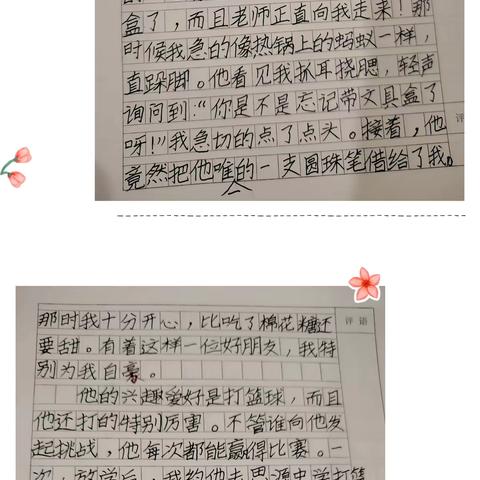 盒了，而且老师正直向我走来！那
时候我急的像热锅上的蚂蚁一样，
直跺脚。他看见我抓耳挠腮，轻声
询问到：“你是不是忘记带文具盒了
呀！”我急切的点了点头。接着，他
竟然把他唯的一支圆珠笔借给了我。
评语
那时我十分开心，比吃了棉花糖还
要甜。有着这样一位好朋友，我特
别为我自豪。
他的兴趣爱好是打篮球，而且
他还打的特别厉害。不管谁向他发
起挑战，他每次都能赢得比赛。一
次，放学后，我约他去思源中学打篮